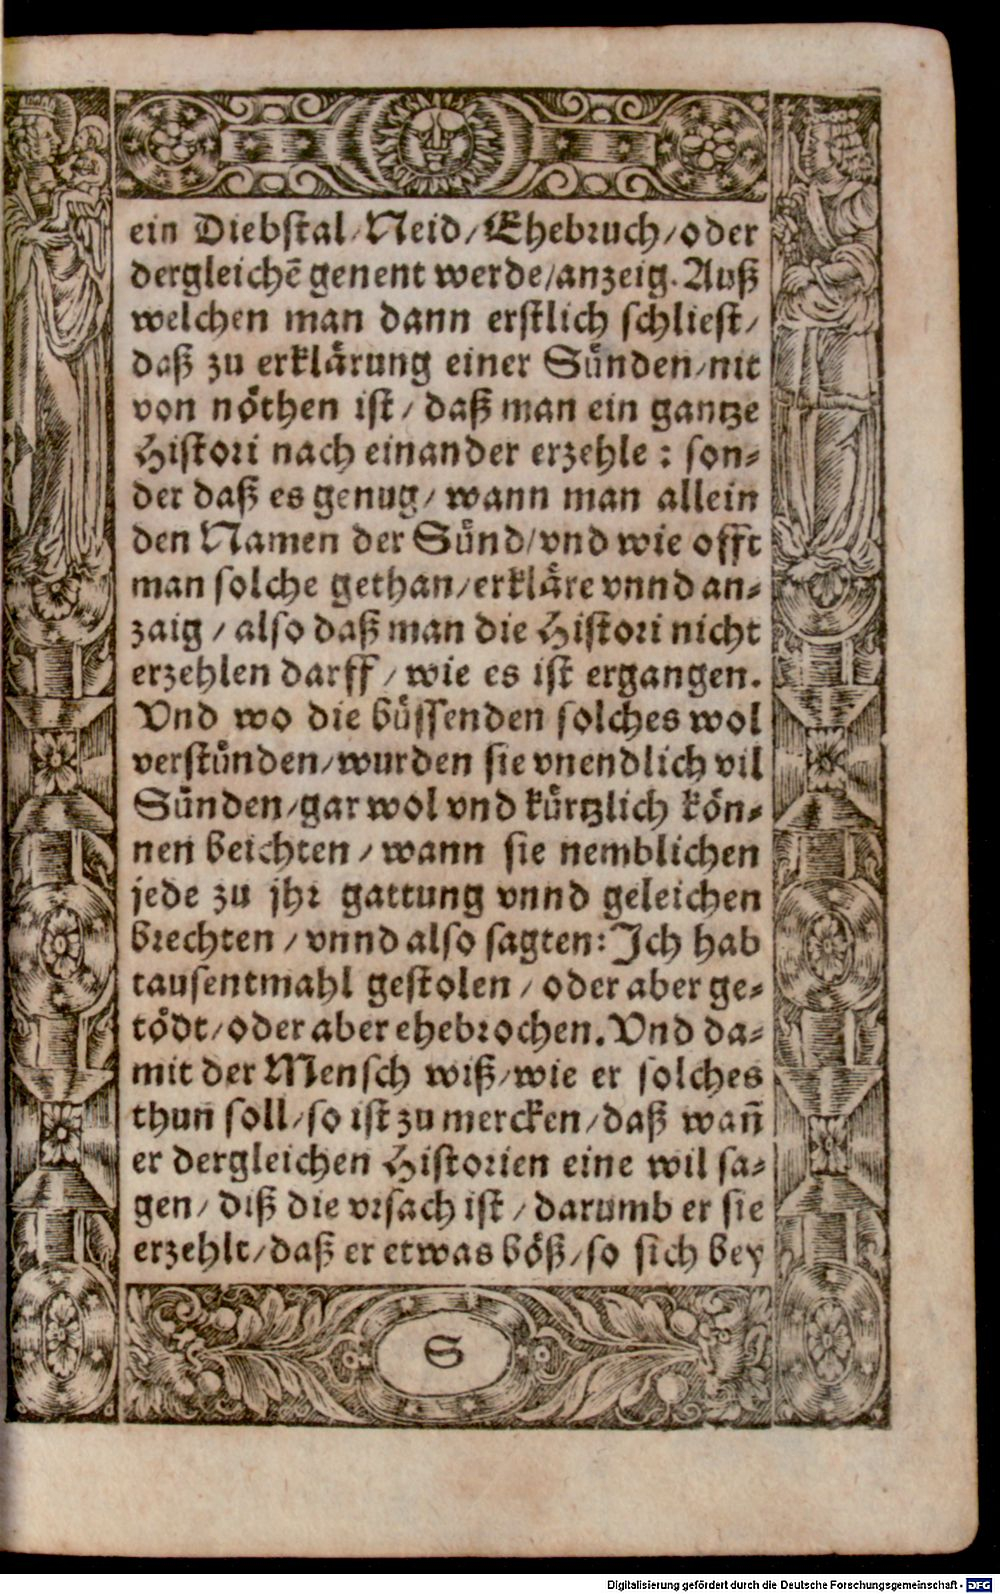 ein Diebſtal/Neid/Ehebꝛuch/oder
dergleichẽ genent werde/anzeig. Auß
welchen man dann erſtlich ſchlieſt/
daß zu erklaͤrung einer Suͤnden/nit
von noͤthen iſt/ daß man ein gantze
Hiſtoꝛi nach einander erzehle: ſon⸗
der daß es genug/ wann man allein
den Namen der Suͤnd/vnd wie offt
man ſolche gethan/erklaͤre vnnd an⸗
zaig/ alſo daß man die Hiſtoꝛi nicht
erzehlen darff/ wie es iſt ergangen.
Vnd wo die buͤſſenden ſolches wol
verſtuͤnden/wurden ſie vnendlich vil
Suͤnden/gar wol vnd kuͤrtzlich koͤn⸗
nen beichten/ wann ſie nemblichen
jede zu jhꝛ gattung vnnd geleichen
bꝛechten/ vnnd alſo ſagten: Ich hab
tauſentmahl geſtolen/ oder aber ge⸗
toͤdt/oder aber ehebꝛochen. Vnd da⸗
mit der Menſch wiß/wie er ſolches
thun ſoll/ſo iſt zu mercken/daß wañ
er dergleichen Hiſtoꝛien eine wil ſa⸗
gen/ diß die vꝛſach iſt/ darumb er ſie
erzehlt/daß er etwas boͤß/ſo ſich bey
S
Digitalisierung gefördert durch die Deutsche Forschungsgemeinschaft - DFG